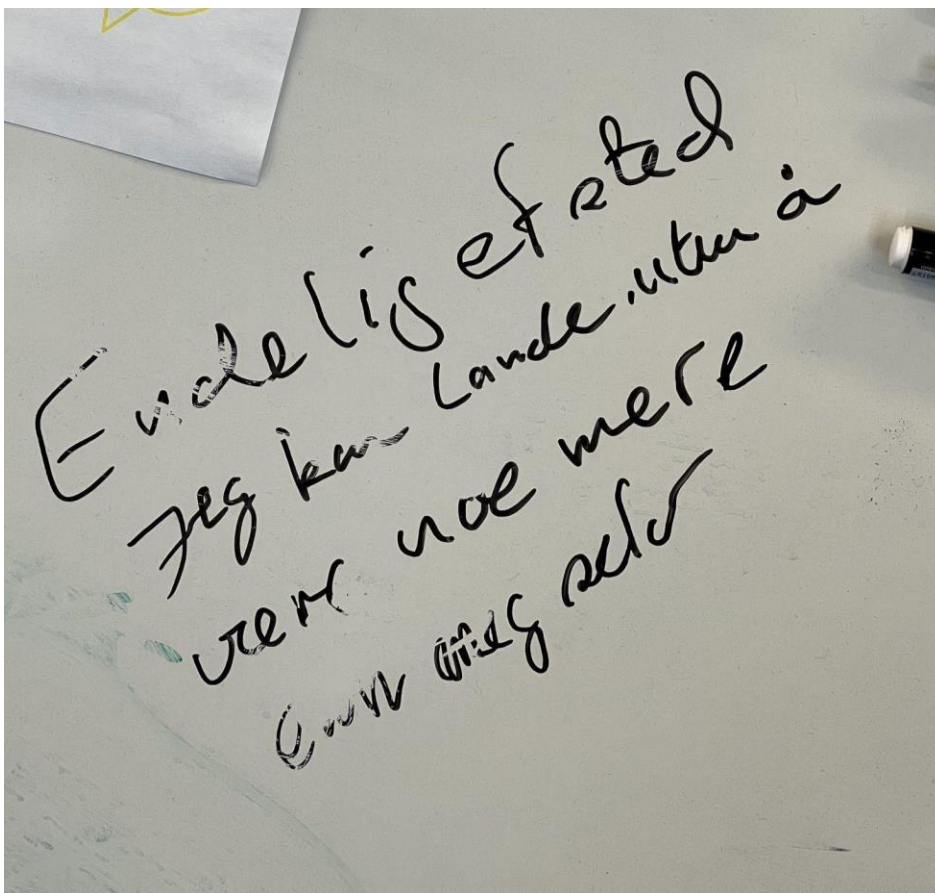 Endelig et sted
Jeg kan Lande.uten å
være noe mere
Enn meg selv